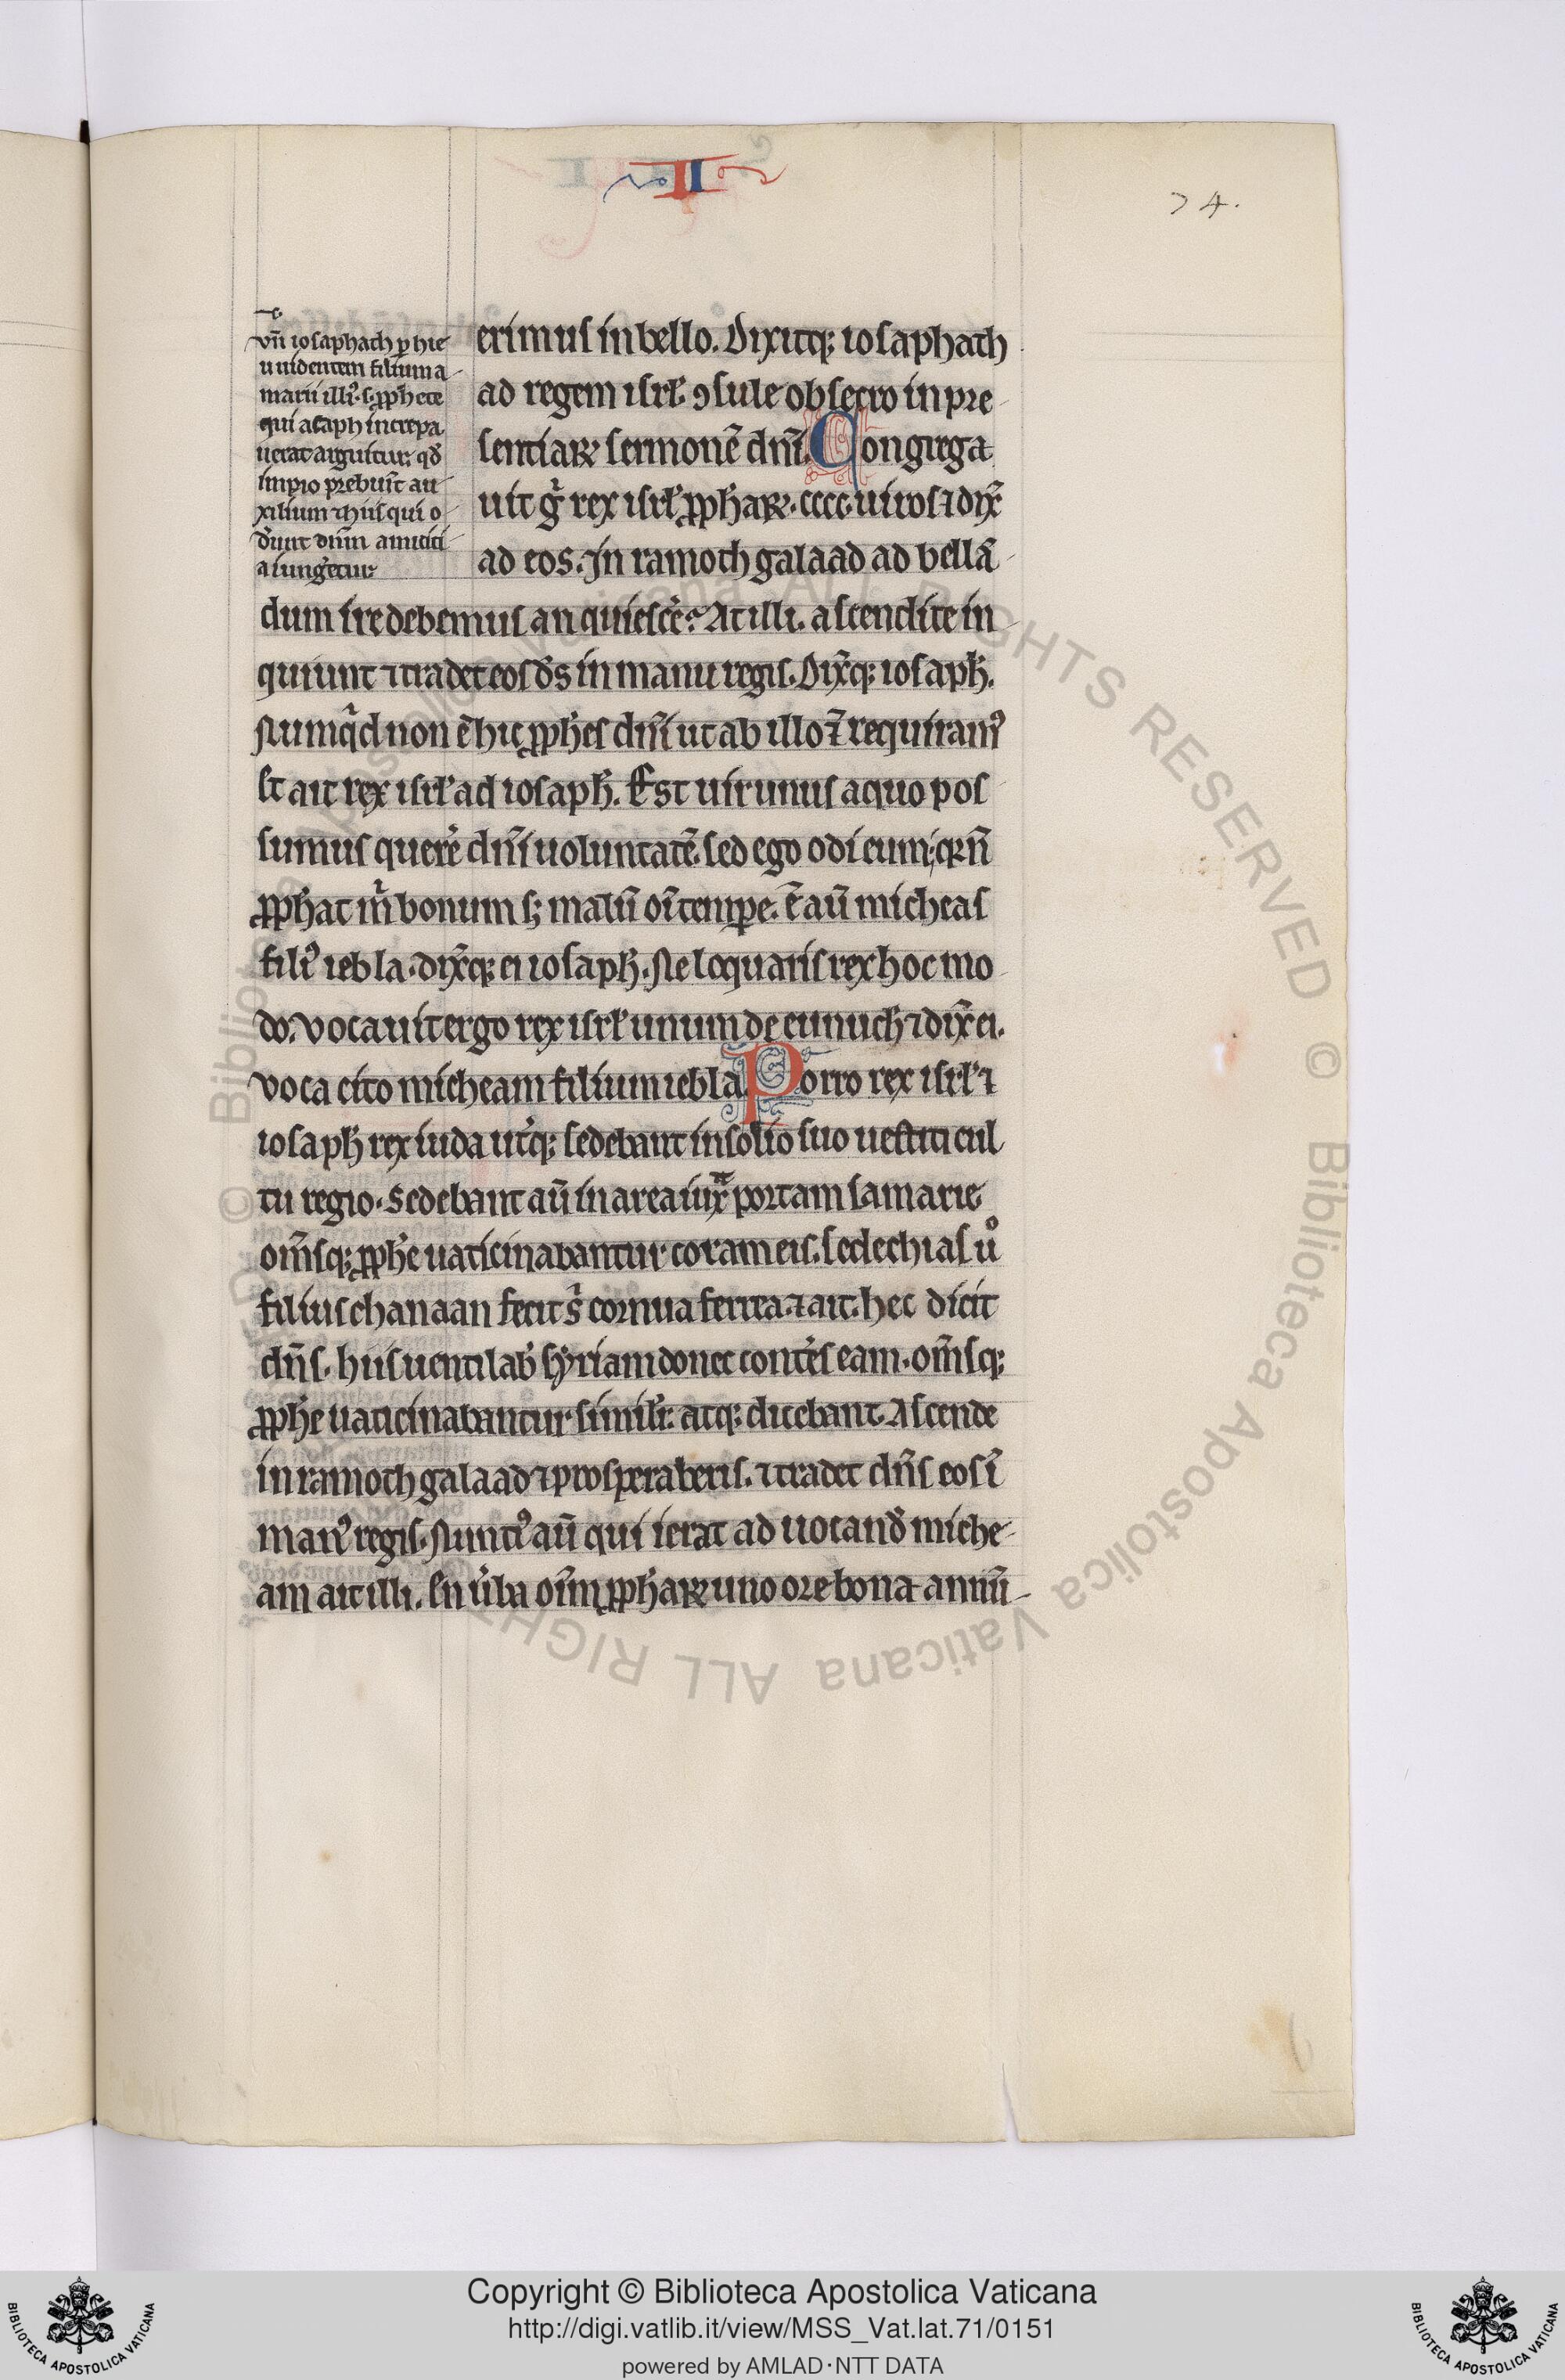 II
74.
vñ iosaphath p hie
u uidentem filium a
manii illi᷒. s. ꝓph̃ete
qui asaph increpa
uerat arguitur. qđ
impio prebuĩt au
xilium ⁊ hiis qui o
đunt dñm amiciti
a iung̃etur
erimus in bello. Dixitq; iosaphath
ad regem isrł. ꝯsule obsecro in pre
sentiaꝝ sermonẽ dñi. Congrega
uit ǧ rex isrł ꝓph̃aꝝ. cccc. uiros ⁊ dix̃
ad eos. In ramoth galaad ad bellã
dum ire debemus an quiescẽ? At illi. ascendite in
quiunt ⁊ tradet eos đs in manu regis. Dix̃q; iosaph̃.
Numq̃d non ẽ hic ꝓph̃es dñi ut ab illo ⁊̃ requiram᷒
st ait rex isrł ad iosaph̃. Est uir unus a quo pos
sumus querẽ dñi uoluntatẽ. sed ego odi eum; q̃ ñ
ꝓph̃at m̃ bonum s; malũ oĩ tempe. ẽ aũ micheas
fili᷒ iebla. dix̃q; ei iosaph̃. Ne loquaris rex hoc mo
do. Vocauit ergo rex isrł unum de eunuch̃ ⁊ dix̃ ei.
voca cito micheam filium iebla. Porro rex isrł ⁊
iosaph̃ rex iuda ut̃q; sedebant in solio suo uestiti cul
tu regio. Sedebant aũ in area iuxᵃ portam samarie.
om̃sq; ꝓph̃e uaticinabantur coram eis. sedechias uͦ
filius chanaan fecit s̃ cornua ferrea. ⁊ ait. hec dicit
dñs. hiis uentilab̃ syriam donec contẽs eam. om̃sq;
ꝓph̃e uaticinabantur simił r. atq; dicebant. Ascende
in ramoth galaad ⁊ prosperaberis. ⁊ tradet dñs eos ĩ
man᷒ regis. Nunti᷒ aũ qui ierat ad uocand̃ miche
am ait illi. En ũba oĩm ꝓph̃aꝝ uno ore bona annũ
Copyright © Biblioteca Apostolica Vaticana
http://digi.vatlib.it/view/MSS_Vat.lat.71/0151
powered by AMLAD·NTT DATA
BIBLIOTECA APOSTOLICA VATICANA
BIBLIOTECA APOSTOLICA VATICANA
© Biblioteca Apostolica Vaticana ALL RIGHTS RESERVED